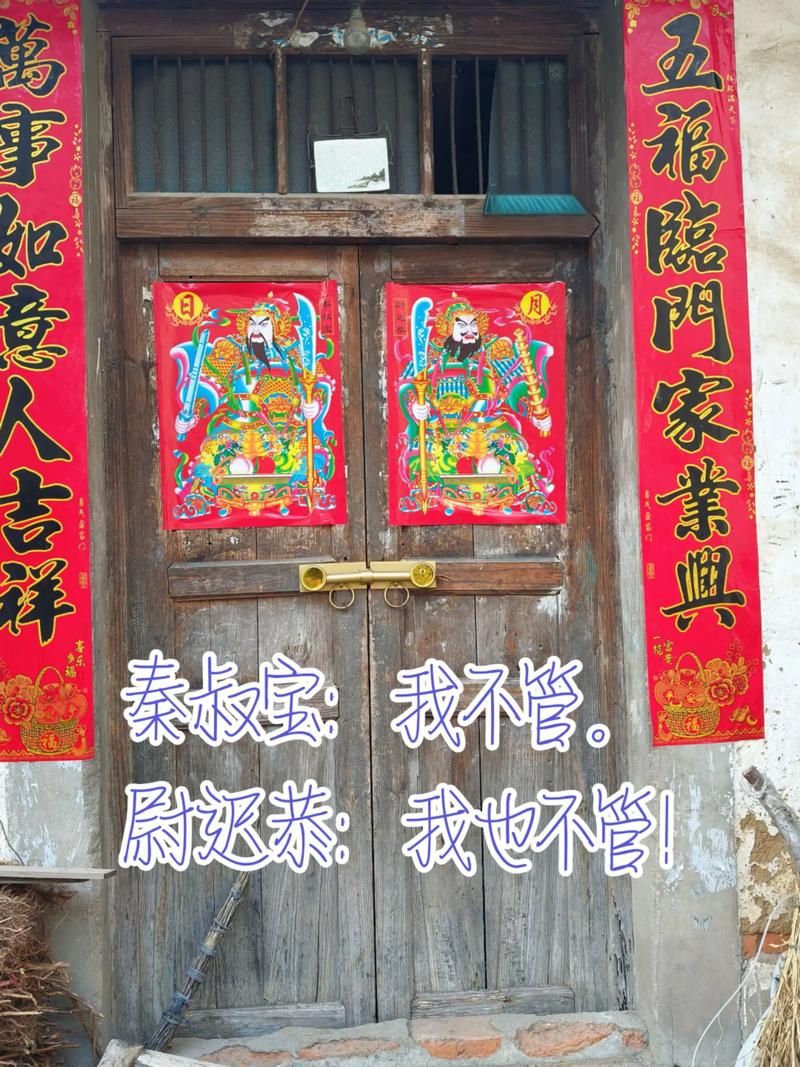 五福臨門家業興
萬事如意人吉祥
日
月
秦叔宝: 我不管。
尉迟恭: 我也不管!
福
福